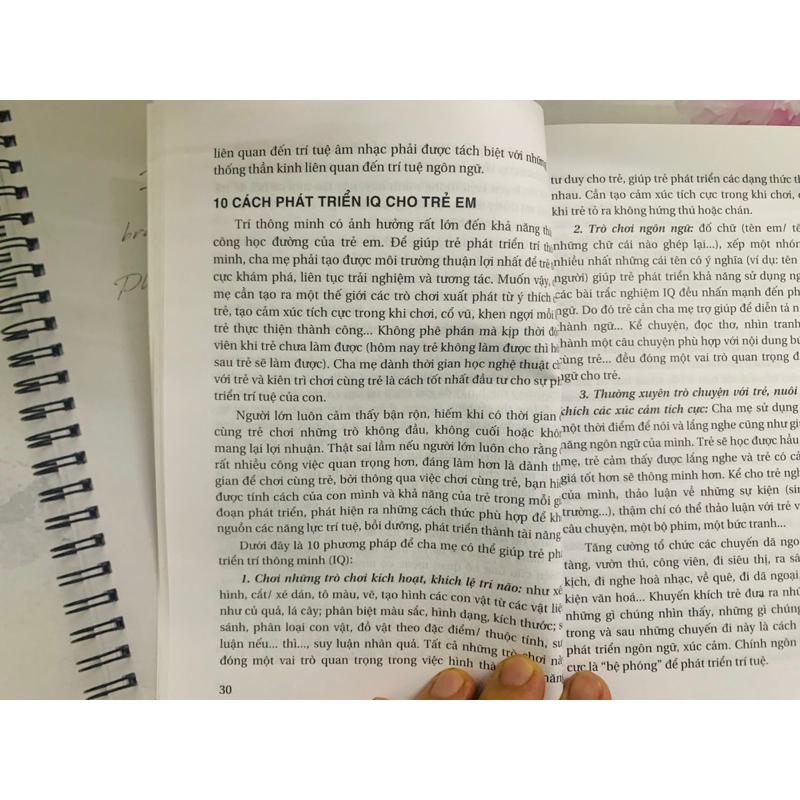 liên quan đến trí tuệ âm nhạc phải được tách biệt với những
thống thần kinh liên quan đến trí tuệ ngôn ngữ.
10 CÁCH PHÁT TRIỂN IQ CHO TRẺ EM
Trí thông minh có ảnh hưởng rất lớn đến khả năng
công học đường của trẻ em. Để giúp trẻ phát triển trí
minh, cha mẹ phải tạo được môi trường thuận lợi nhất để trẻ
cực khám phá, liên tục trải nghiệm và tương tác. Muốn vậy,
mẹ cần tạo ra một thế giới các trò chơi xuất phát từ ý thích
trẻ, tạo cảm xúc tích cực trong khi chơi, cổ vũ, khen ngợi mỗi
trẻ thực thiện thành công... Không phê phán mà kịp thời
viên khi trẻ chưa làm được (hôm nay trẻ không làm được thì
sau trẻ sẽ làm được). Cha mẹ dành thời gian học nghệ thuật
với trẻ và kiên trì chơi cùng trẻ là cách tốt nhất đầu tư cho sự
triển trí tuệ của con.
Người lớn luôn cảm thấy bận rộn, hiếm khi có thời gian
cùng trẻ chơi những trò không đầu, không cuối hoặc
mang lại lợi nhuận. Thật sai lầm nếu người lớn luôn cho rằng
rất nhiều công việc quan trọng hơn, đáng làm hơn là dành
gian để chơi cùng trẻ, bởi thông qua việc chơi cùng trẻ, bạn
được tính cách của con mình và khả năng của trẻ trong mỗi
đoạn phát triển, phát hiện ra những cách thức phù hợp để
nguồn các năng lực trí tuệ, bồi dưỡng, phát triển thành tài năng
Dưới đây là 10 phương pháp để cha mẹ có thể giúp trẻ
triển trí thông minh (IQ):
1. Chơi những trò chơi kích hoạt, khích lệ trí não: như
hình, cắt/ xé dán, tô màu, vẽ, tạo hình các con vật từ các vật
như củ quả, lá cây; phân biệt màu sắc, hình dạng, kích thước;
sánh, phân loại con vật, đồ vật theo đặc điểm/ thuộc tính,
luận nếu... thì..., suy luận nhân quả. Tất cả những trò chơi
đóng một vai trò quan trọng trong việc hình
30
tư duy cho trẻ, giúp trẻ phát triển các dạng thức
nhau. Cần tạo cảm xúc tích cực trong khi chơi,
khi trẻ tỏ ra không hứng thú hoặc chán.
2. Trò chơi ngôn ngữ: đố chữ (tên em/
những chữ cái nào ghép lại...), xếp một
nhiều nhất những cái tên có ý nghĩa (ví dụ: tên
người) giúp trẻ phát triển khả năng sử dụng
các bài trắc nghiệm IQ đều nhấn mạnh đến
ngữ. Do đó trẻ cần cha mẹ trợ giúp để diễn tả
hành ngữ... Kể chuyện, đọc thơ, nhìn
hành một câu chuyện phù hợp với nội dung
cùng trẻ... đều đóng một vai trò quan trọng
ngữ cho trẻ.
3. Thường xuyên trò chuyện với trẻ, nuôi
khích các xúc cảm tích cực: Cha mẹ sử dụng
một thời điểm để nói và lắng nghe cũng như
năng ngôn ngữ của mình. Trẻ sẽ học được hầu
mẹ, trẻ cảm thấy được lắng nghe và trẻ có
giá tốt hơn sẽ thông minh hơn. Kể cho trẻ
của mình, thảo luận về những sự kiện
trường...), thậm chí có thể thảo luận với trẻ
câu chuyện, một bộ phim, một bức tranh...
Tăng cường tổ chức các chuyến dã
tàng, vườn thú, công viên, đi siêu thị, ra
kịch, đi nghe hoà nhạc, về quê, đi dã ngoại
kiện văn hoá... Khuyến khích trẻ đưa ra
những gì chúng nhìn thấy, những gì chúng
trong và sau những chuyến đi này là cách
phát triển ngôn ngữ, xúc cảm. Chính ngôn
cực là "bệ phóng" để phát triển trí tuệ.